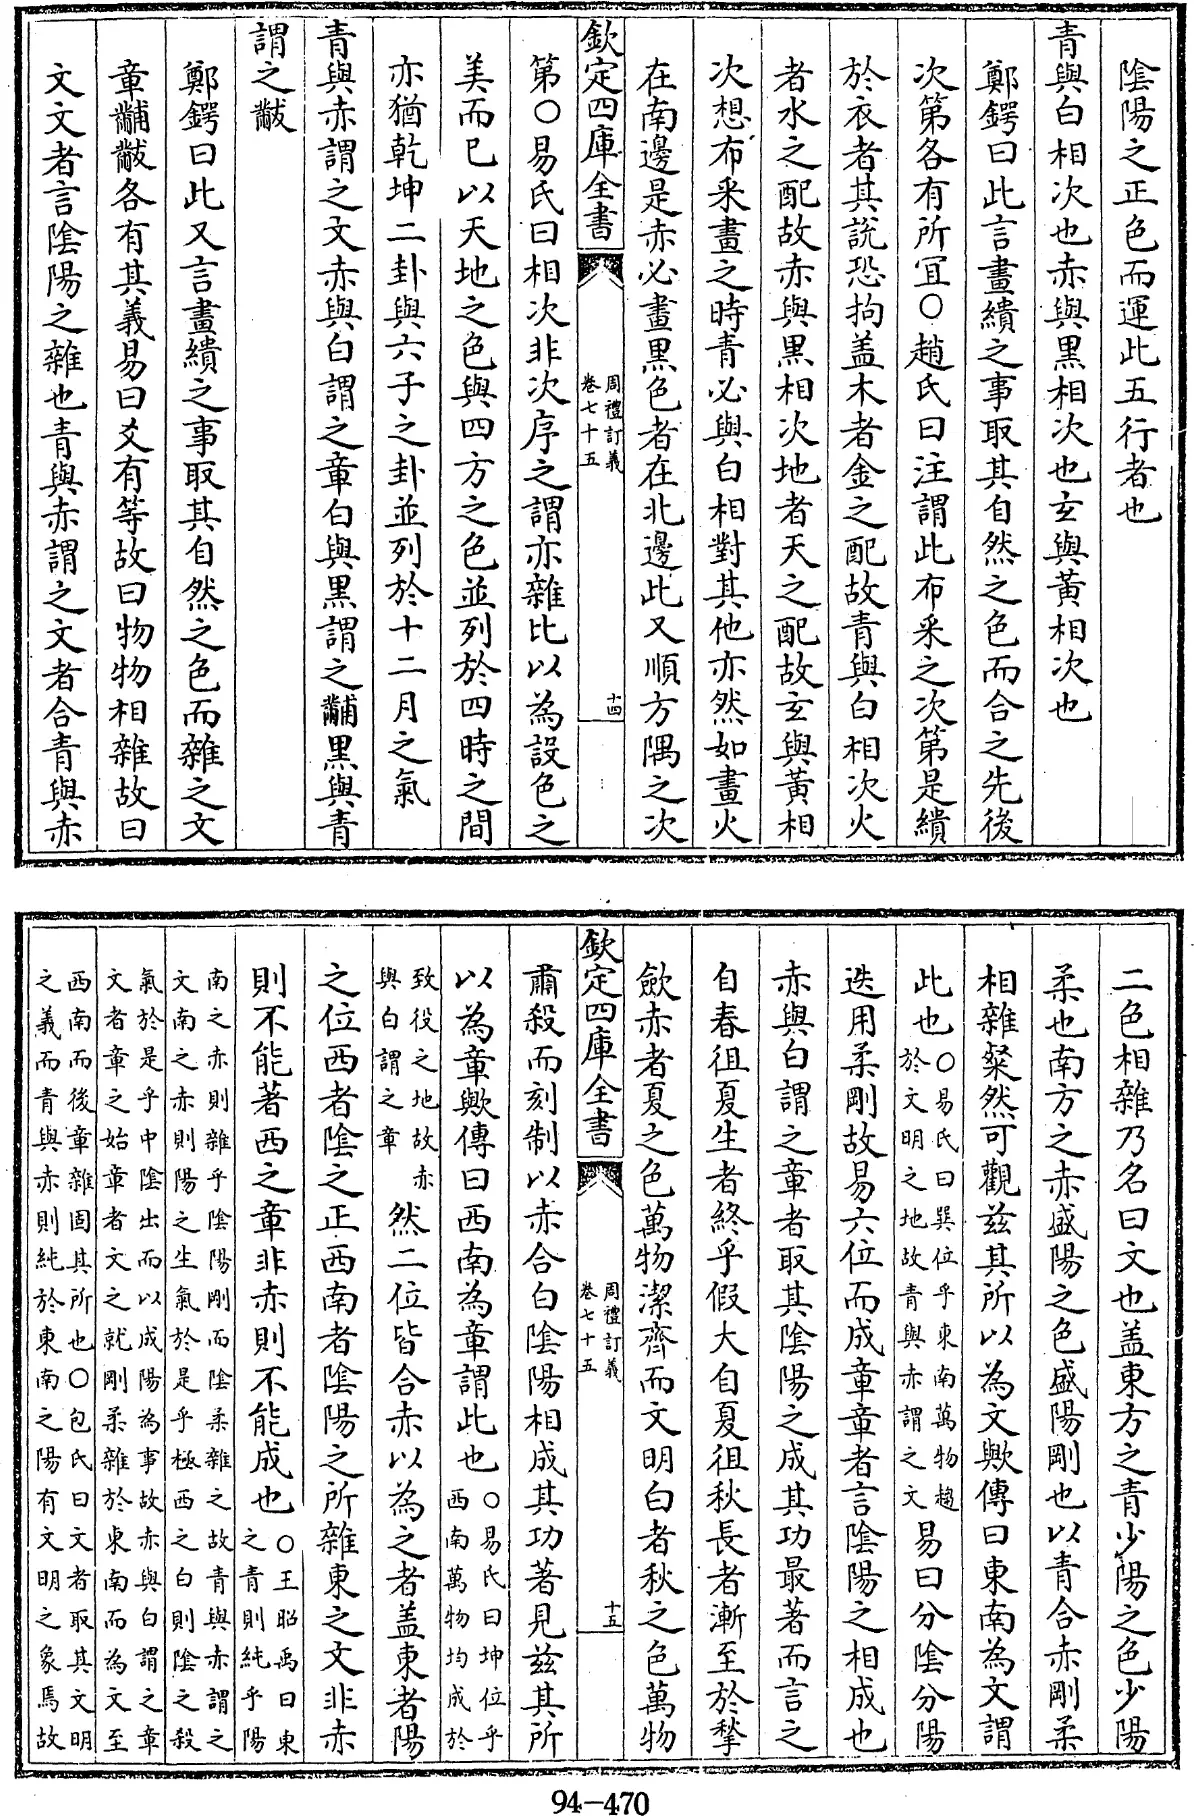 陰陽之正色而運此五行者也
青與白相次也赤與黑相次也玄與黃相次也
鄭鍔曰此言畫繢之事取其自然之色而合之先後
次第各有所宜○趙氏曰注謂此布采之次第是繢
於衣者其説恐拘盖木者金之配故青與白相次火
者水之配故赤與黑相次地者天之配故玄與黃相
次想布采畫之時青必與白相對其他亦然如畫火
在南邊是赤必畫黑色者在北邊此又順方隅之次
欽定四庫全書
周禮訂義
卷七十五
十四
第○易氏曰相次非次序之謂亦雜比以為設色之
美而已以天地之色與四方之色並列於四時之間
亦猶乾坤二卦與六子之卦並列於十二月之氣
青與赤謂之文赤與白謂之章白與黑謂之黼黑與青
謂之黻
鄭鍔曰此又言畫繢之事取其自然之色而雜之文
章黼黻各有其義易曰爻有等故曰物物相雜故曰
文文者言陰陽之雜也青與赤謂之文者合青與赤
二色相雜乃名曰文也盖東方之青少陽之色少陽
柔也南方之赤盛陽之色盛陽剛也以青合赤剛柔
相雜粲然可觀兹其所以為文歟傳曰東南為文謂
此也○易氏曰巽位乎東南萬物趨於文明之地故青與赤謂之文易曰分陰分陽
迭用柔剛故易六位而成章章者言陰陽之相成也
赤與白謂之章者取其陰陽之成其功最著而言之
自春徂夏生者終乎假大自夏徂秋長者漸至於揫
斂赤者夏之色萬物潔齊而文明白者秋之色萬物
欽定四庫全書
周禮訂義
卷七十五
十五
肅殺而刻制以赤合白陰陽相成其功著見兹其所
以為章歟傳曰西南為章謂此也○易氏曰坤位乎西南萬物均成於
致役之地故赤與白謂之章然二位皆合赤以為之者盖東者陽
之位西者陰之正西南者陰陽之所雜東之文非赤
則不能著西之章非赤則不能成也○王昭禹曰東之青則純乎陽
南之赤則雜乎陰陽剛而陰柔雜之故青與赤謂之
文南之赤則陽之生氣於是乎極西之白則陰之殺
氣於是乎中陰出而以成陽為事故赤與白謂之章
文者章之始章者文之就剛柔雜於東南而為文至
西南而後章雜固其所也○包氏曰文者取其文明
之義而青與赤則純於東南之陽有文明之象焉故
94-470